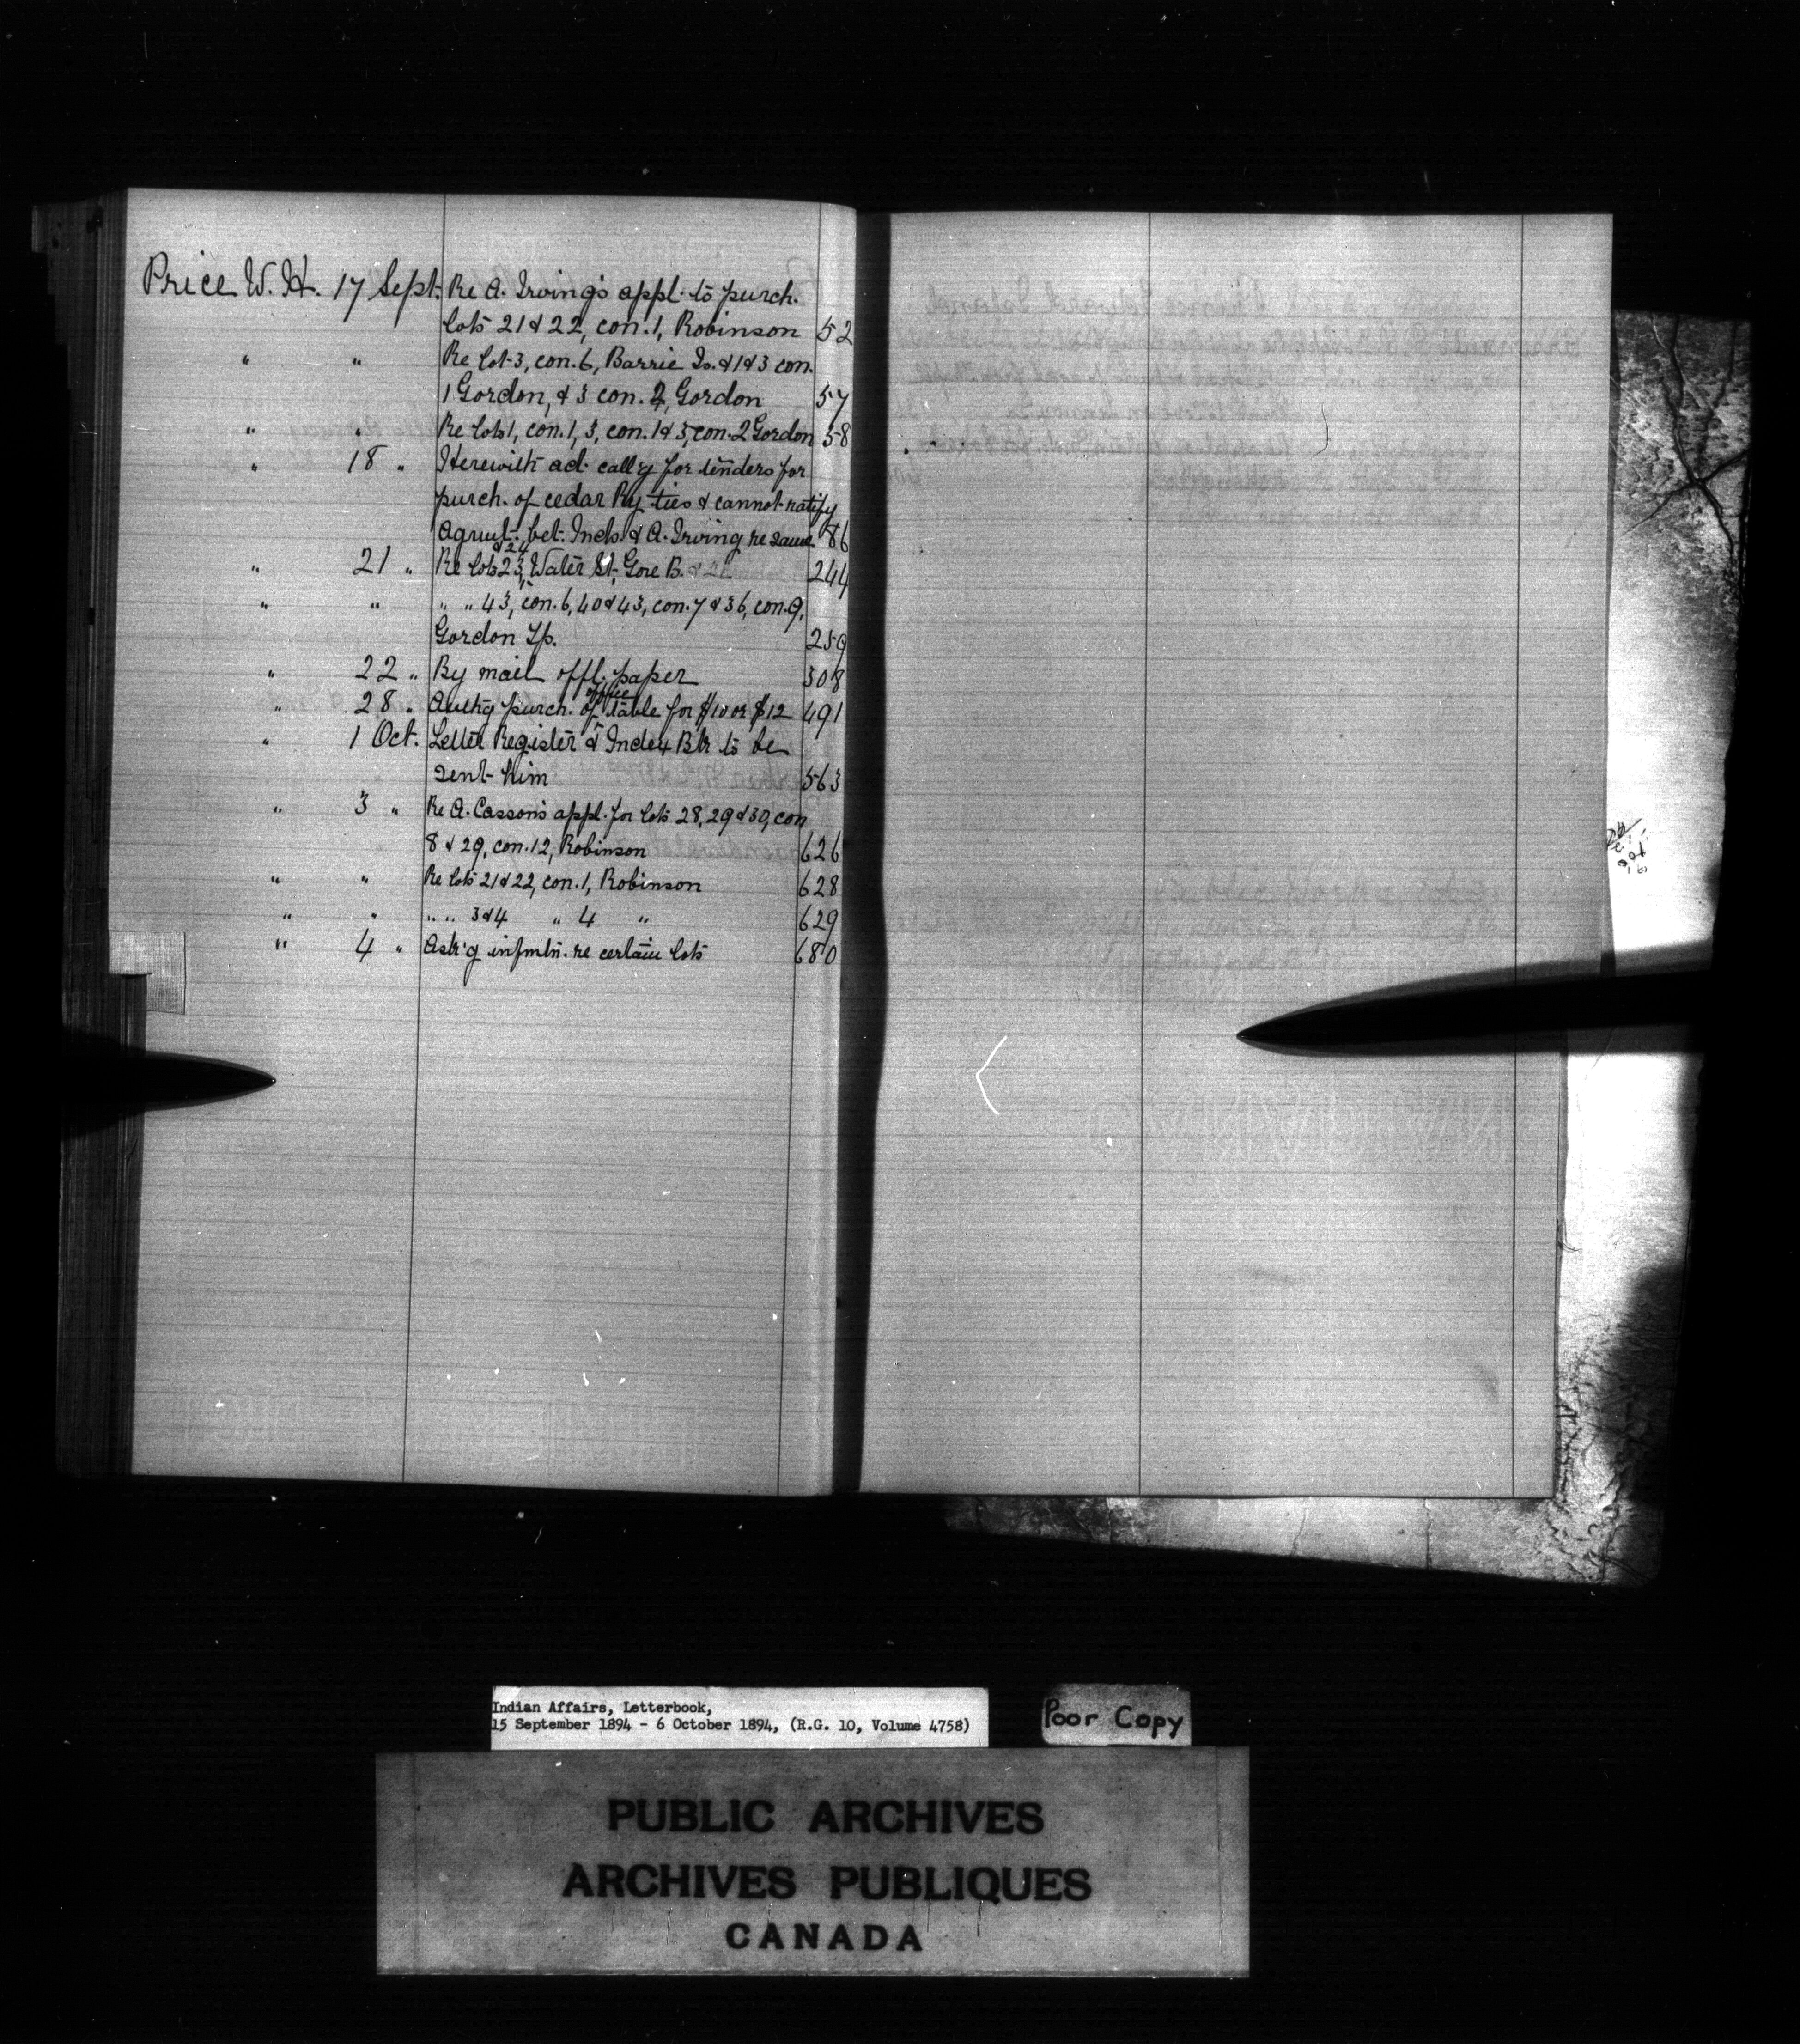 Price W. H. 17 Sept. Re A. Irving's appl. to purch.
lots 21 & 22, con. 1, Robinson 52
" " Re lot 3, con. 6, Barrie Is. & 1 & 3 con.
1 Gordon, & 3 con. 2, Gordon 57
" " Re lots 1, con. 1, 3, con. 1 & 3, con. 2 Gordon 58
" 18 " Herewith ad. call'g for tenders for
purch. of cedar Ry. ties & cannot ratify
agrmt. bet. Inds. & A. Irving re same 86
" 21 " Re lots 23, & 24 Water St., Gore B. 244
" " " " 43, con. 6, 40 & 43, con. 7 & 36, con. 9,
Gordon Tp. 259
" 22 " By mail offl. paper 308
" 28 " Auth'g purch. of office table for $10 or $12 491
" 1 Oct. Letter Register & Index Bk to be
sent him 563
" 3 " Re A. Casson's appl. for lots 28, 29 & 30, con
8 & 29, con. 12, Robinson 626
" " Re lots 21 & 22, con. 1, Robinson 628
" " " " 3 & 4 " 4 " 629
" 4 " Ask'g infmtn. re certain lots 680
Indian Affairs, Letterbook,
15 September 1894 - 6 October 1894, (R.G. 10, Volume 4758)
Poor Copy
PUBLIC ARCHIVES
ARCHIVES PUBLIQUES
CANADA